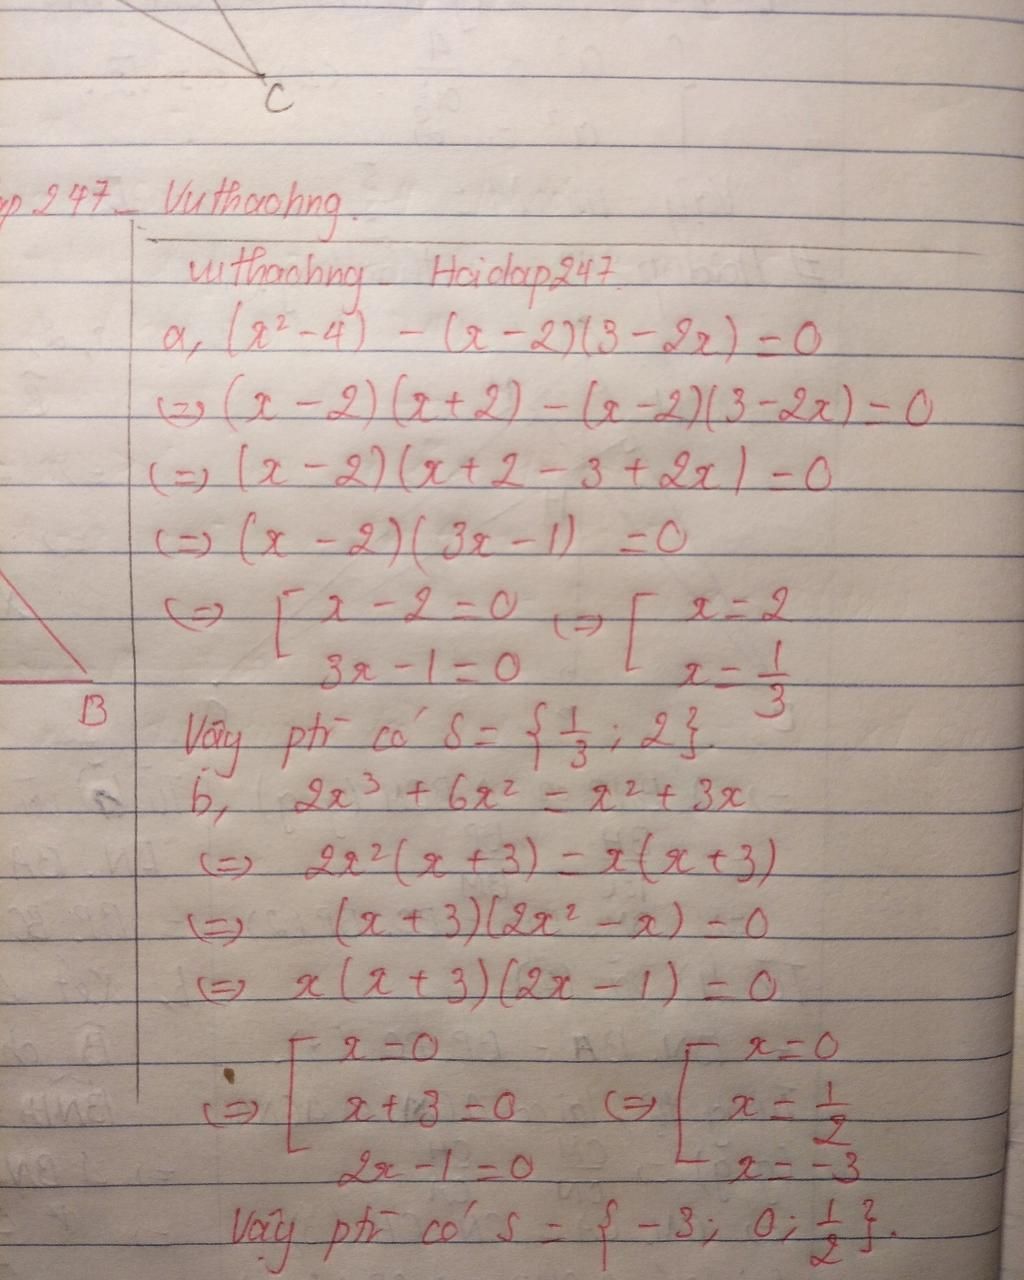 C
247 - Vuthaohng.
B
vuthaohng - Hoidap247.
a, (x² - 4) - (x - 2)(3 - 2x) = 0
(=) (x - 2)(x + 2) - (x - 2)(3 - 2x) = 0
(=) (x - 2)(x + 2 - 3 + 2x) = 0
(=) (x - 2)(3x - 1) = 0
(=) [ x - 2 = 0 (=) [ x = 2
3x - 1 = 0 x = 1/3
Vậy ptr có S = { 1/3 ; 2 }.
b, 2x³ + 6x² = x² + 3x
(=) 2x²(x + 3) = x(x + 3)
(=) (x + 3)(2x² - x) = 0
(=) x(x + 3)(2x - 1) = 0
[ x = 0 [ x = 0
(=) x + 3 = 0 (=) x = 1/2
2x - 1 = 0 x = -3
Vậy ptr có S = { -3 ; 0 ; 1/2 }.